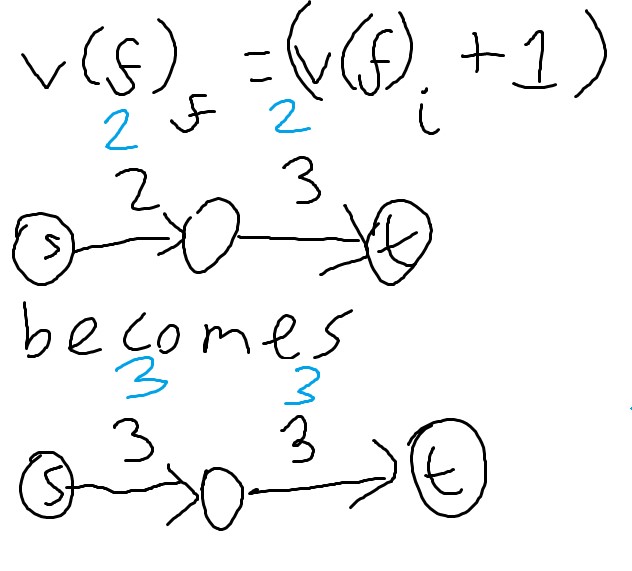 v(f)f = (v(f)i + 1)
2 2
2 3
s t
becomes
3 3
3 3
s t